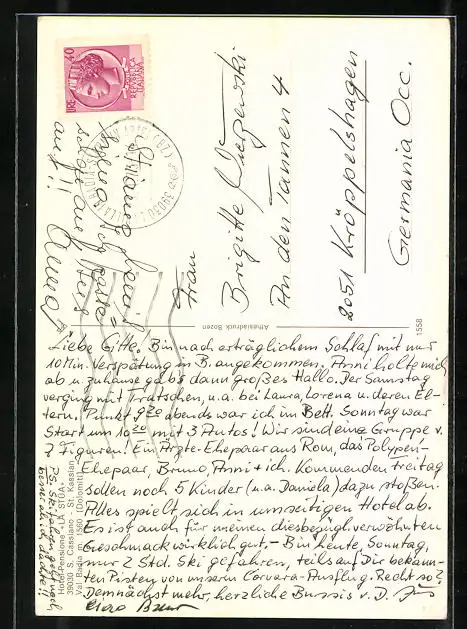 Liebe Gitte. Bin nach erträglichem Schlaf mit nur
10 Min. Verspätung in B. angekommen. Anni holte mich
ab u. zuhause gab's dann großes Hallo. Der Samstag
verging mit Tratschen, u.a. bei Laura, Lorena u. deren El-
tern. Punkt 9²⁰ abends war ich im Bett. Sonntag war
Start um 10²⁰ mit 3 Autos! Wir sind eine Gruppe v.
7 Figuren! Ein Ärzte-Ehepaar aus Rom, das "Polypen"-
Ehepaar, Bruno, Anni + ich. Kommenden Freitag
sollen noch 5 Kinder (u.a. Daniela) dazu stoßen.
Alles spielt sich in unseitigen Hotel ab.
Es ist auch für meinen diesbezügl. verwöhnten
Geschmack wirklich gut. – Bin heute, Sonntag,
nur 2 Std. Ski gefahren, teils auf Dir bekann-
ten Pisten von unserm Corvara-Ausflug. Recht so?
Demnächst mehr, herzliche Bussis v. D.
PS. Ski fahren geht noch
besser als ich dachte!!
Hotel-Pensione «LA STÜA»
39030 S. Cassiano - St. Kassian
Val Badia m. 1560 (Dolomiti)
Athesiadruck Bozen
1558
LIRE 40
REPUBBLICA
ITALIANA
39030
(BZ)
Frau
Brigitte
An den Tannen 4
2051 Kröppelshagen
Germania Occ.
auf!!
Anna